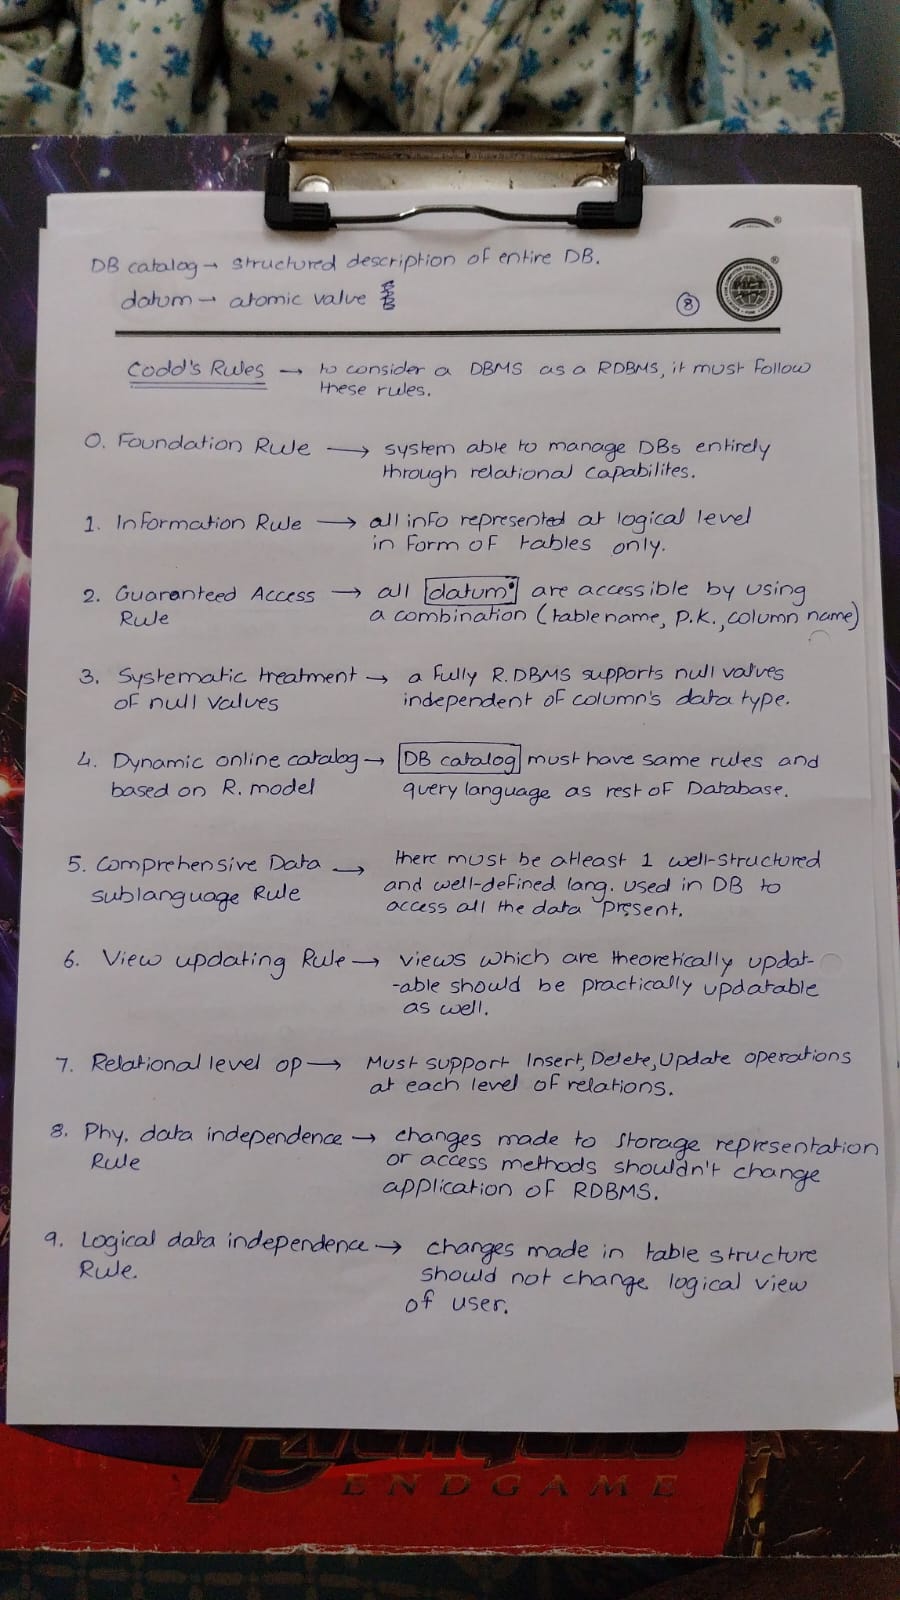 DB catalog → structured description of entire DB.
datum → atomic value
8
Codd's Rules → to consider a DBMS as a RDBMS, it must follow
these rules.
0. Foundation Rule → system able to manage DBs entirely
through relational capabilites.
1. Information Rule → all info represented at logical level
in form of tables only.
2. Guaranteed Access → all datum are accessible by using
Rule a combination (table name, p.k., column name)
3. Systematic treatment → a fully R.DBMS supports null values
of null values independent of column's data type.
4. Dynamic online catalog → DB catalog must have same rules and
based on R. model query language as rest of Database.
5. Comprehensive Data → there must be atleast 1 well-structured
sublanguage Rule and well-defined lang. used in DB to
access all the data present.
6. View updating Rule → views which are theoretically updat-
-able should be practically updatable
as well.
7. Relational level op → Must support Insert, Delete, Update operations
at each level of relations.
8. Phy. data independence → changes made to storage representation
Rule or access methods shouldn't change
application of RDBMS.
9. Logical data independence → changes made in table structure
Rule. should not change logical view
of user.
ENDGAME